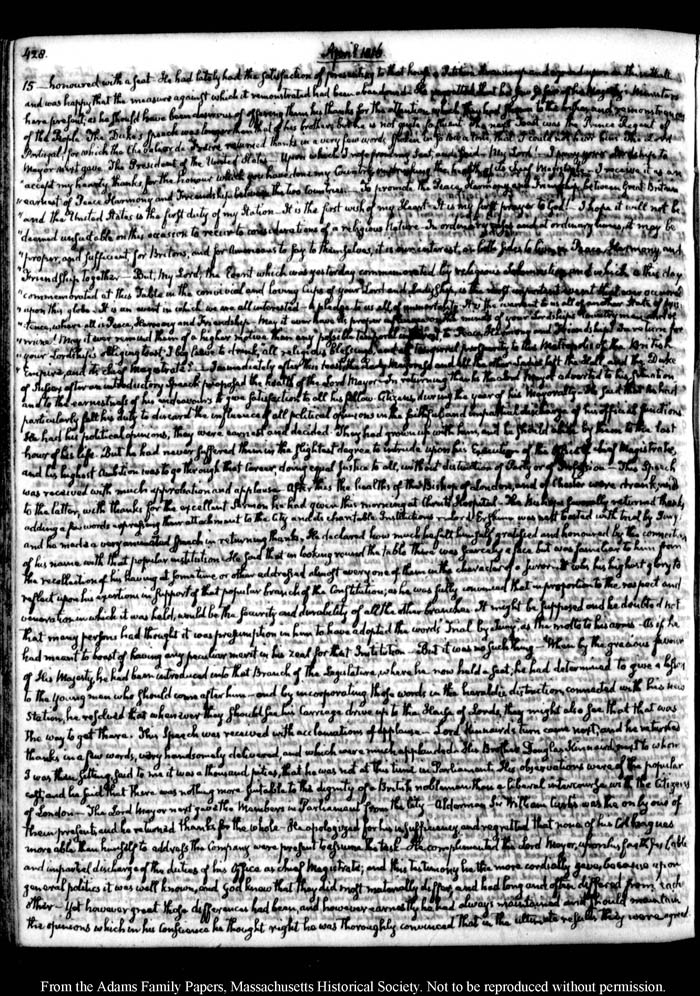 428.
April 1816
15 — honoured with a seat. He had lately had the satisfaction of presenting to that house a Petition
and was happy that the measure against which it remonstrated had been abandoned. He regretted that his Majesty's Ministers
here present, as he should have been desirous of offering them his thanks for the attention which they had shewn to the
of the People. The Duke's speech was longer than that of his brothers but he is not quite so fluent. The next Toast was the Prince Regent of
Portugal; for which the Chevalier de Freire returned thanks in a very few words, spoken in so low a tone that I could not hear him. The Lord
Mayor next gave The President of the United States. Upon which I rose from my seat, and said — My Lord! — I pray your Lordship to
"accept my hearty thanks for the honour which you have done my Country, in proposing the health of its chief Magistrate. I receive it as an
"earnest of Peace Harmony and Friendship between the two Countries. To promote the Peace, Harmony and Friendship between Great Britain
"and the United States is the first duty of my Station. It is the first wish of my Heart. It is my first prayer to God! I hope it will not be
"deemed unsuitable on this occasion to recur to considerations of a religious Nature. In ordinary and at ordinary times, it may be
"proper, and sufficient for Britons, and for Americans to say to themselves, it is our interest, on both sides to live in Peace, Harmony, and
"Friendship together. But, My Lord, the Event which was yesterday commemorated by religious Solemnities, and which is this day
"commemorated at this Table in the convivial and loving Cups of your Lord and Ladyship, is the most important event that ever occurred
"upon this globe. It is an event in which we are all interested. A pledge to us all of immortality. It is the earnest to us all of another State of
"tence, where all is Peace, Harmony and Friendship. May it ever have its proper influence upon the minds of your Lordship's Country men and of
"mine! May it ever remind them of a higher motive than any possible temporal interest to Peace, Harmony and Friendship! In return for
"your Lordship's obliging toast I beg leave to drink, all religious blessings, and all temporal prosperity to the Metropolis of the British
Empire, and its chief Magistrate! — Immediately after this toast the Lady Mayoress and all the other Ladies left the Hall, and the Duke
of Sussex after an introductory Speech proposed the health of the Lord Mayor. In returning thanks the Lord Mayor adverted to his situation
and to the earnestness of his endeavours to give satisfaction to all his fellow Citizens, during the year of his Mayoralty. He said that he had
particularly felt his duty to discard the influence of all political opinions in the faithful and impartial discharge of his official functions
He had his political opinions, they were earnest and decided. They had grown up with him, and he should abide by them to the last
hour of his life. But he had never suffered them in the slightest degree to intrude upon his Execution of the Office of chief Magistrate,
and his highest Ambition was to go through that Career, doing equal Justice to all, without distinction of Party or of Profession. — This Speech
was received with much approbation and applause. After this the healths of the Bishops of London, and of Chester were drank, and
to the latter, with thanks for the excellent Sermon he had given this morning at Christ's Hospital. The Bishops severally returned thanks,
adding a few words expressing their attachment to the City and its charitable Institutions. Lord Erskine was next toasted with trial by Jury
and he made a very animated Speech in returning thanks. He declared how much he felt himself gratified and honoured by the connection
of his name with that popular institution. He said that in looking round the table there was scarcely a face but was familiar to him from
the recollection of his having at some time or other addressed almost every one of them in the character of a juror. It was his highest glory to
reflect upon his exertions in support of that popular branch of the Constitution; as he was fully convinced that in proportion to the respect and
veneration in which it was held, would be the security and durability of all the other branches. It might be supposed and he doubted not
that many persons had thought it was presumption in him to have adopted the words Trial by Jury, as the motto to his arms. As if he
had meant to boast of having any peculiar merit in his zeal for that Institution. But it was no such thing. When by the gracious favour
of His Majesty, he had been introduced into that Branch of the Legislature, where he now held a seat, he had determined to give a lesson
to the young men who should come after him — and by incorporating those words in the heraldic distinction connected with his new
Station, he resolved that whenever they should see his Carriage drive up to the House of Lords, they might also see that that was
the way to get there. This Speech was received with acclamations of applause. Lord Kinnaird's turn came next, and he returned
thanks in a few words, very handsomely delivered, and which were much applauded. His Brother Douglas Kinnaird, next to whom
I was then sitting, said to me it was a thousand pities, that he was not at this time in Parliament. His observations were of the popular
cast, and he said that there was nothing more suitable to the dignity of a British nobleman than a liberal intercourse with the Citizens
of London. The Lord Mayor next gave the Members in Parliament from the City. Alderman Sir William Curtis was the only one of
them present, and he returned thanks for the whole. He apologized for his insufficiency, and regretted that none of his Colleagues
more able than himself to address the Company were present to assume the task. He complimented the Lord Mayor, upon his faithful, able
and impartial discharge of the duties of his Office as chief Magistrate; and this testimony he the more cordially gave, because upon
general politics it was well known, and God knew that they did most materially differ, and had long and often differed from each
other. Yet however great those differences had been, and however earnestly he had always maintained and should maintain
the opinions which in his conscience he thought right he was thoroughly convinced that in the ultimate result they were agreed
From the Adams Family Papers, Massachusetts Historical Society. Not to be reproduced without permission.